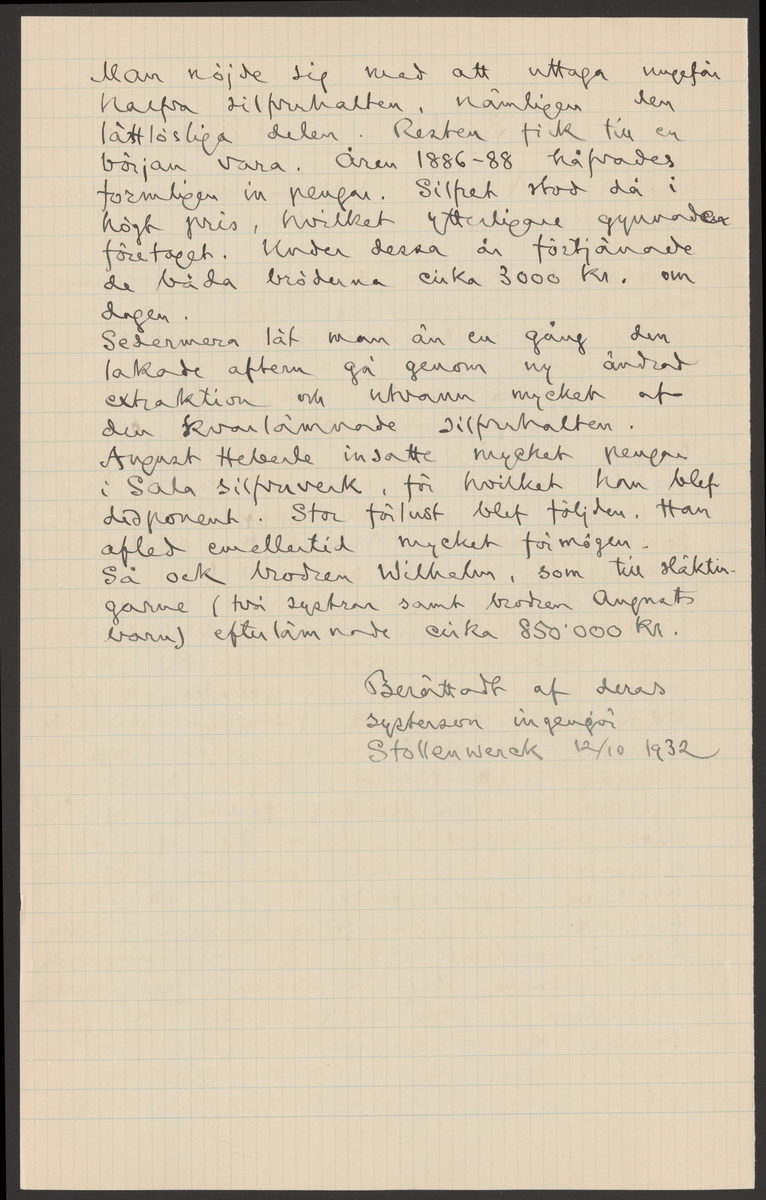 Man nöjde sig med att uttaga ungefär
halfva silfverhalten, nämligen den
lättlösliga delen. Resten fick till en
början vara. Åren 1886-88 håfvades
formligen in pengar. Silfret stod då i
högt pris, hvilket ytterligare gynnade
företaget. Under dessa år förtjänade
de båda bröderna cirka 3000 kr. om
dagen.
Sedermera lät man än en gång den
lakade aftern gå genom ny ändrad
extraktion och utvann mycket af
den kvarlämnade silfverhalten.
August Heberle insatte mycket pengar
i Sala silfververk, för hvilket han blef
disponent. Stor förlust blef följden. Han
afled emellertid mycket förmögen.
Så ock brodren Wilhelm, som till släktin-
garne (två systrar samt brodren Augusts
barn) efterlämnade cirka 850'000 kr.
Berättadt af deras
systerson ingenjör
Stollenwerck 12/10 1932